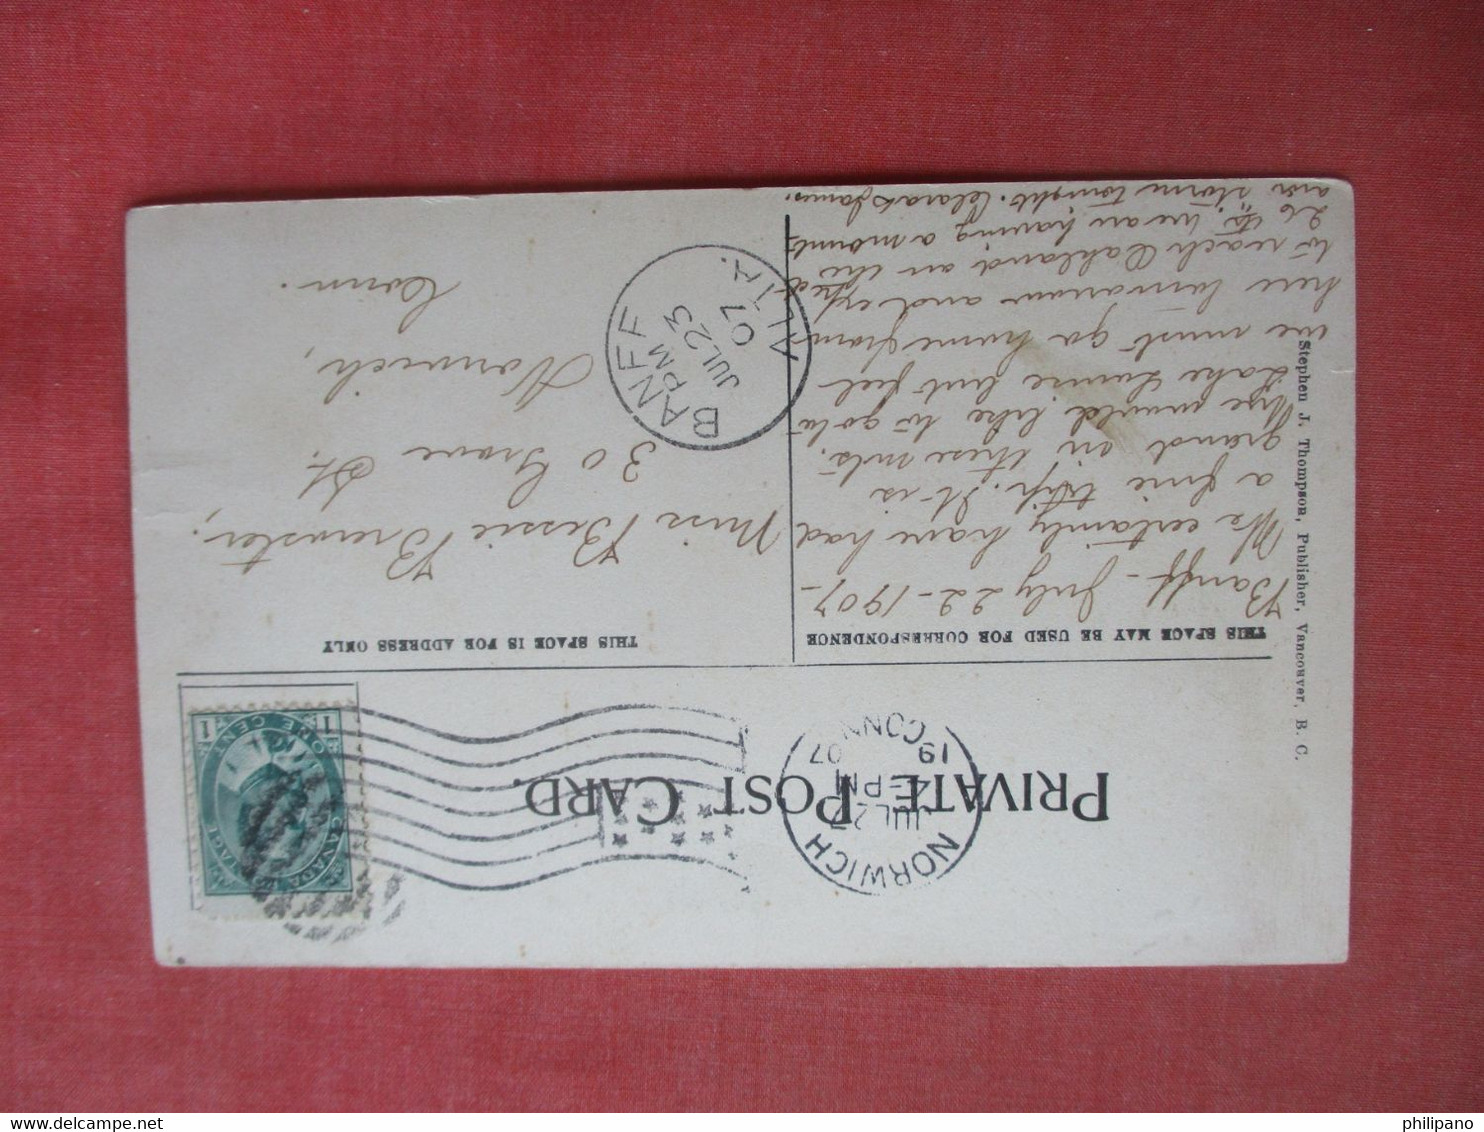 PRIVATE POST CARD.
NORWICH
JUL 27
-PM
19 07
CONN
CANADA POSTAGE
ONE CENT
1 1
THIS SPACE MAY BE USED FOR CORRESPONDENCE
THIS SPACE IS FOR ADDRESS ONLY
Banff - July 22 - 1907 -
We certainly have had
a fine trip. It is
grand in these mts.
would like to go to
Lake Louise but feel
we must go home from
here tomorrow and expect
to reach Oakland on the
26 th. We are having a mount-
ain storm tonight.
Miss Bessie Brewster,
30 Grove St.
Norwich,
Conn.
BANFF
PM
JUL 23
07
ALTA.
Stephen J. Thompson, Publisher, Vancouver, B. C.
philipano